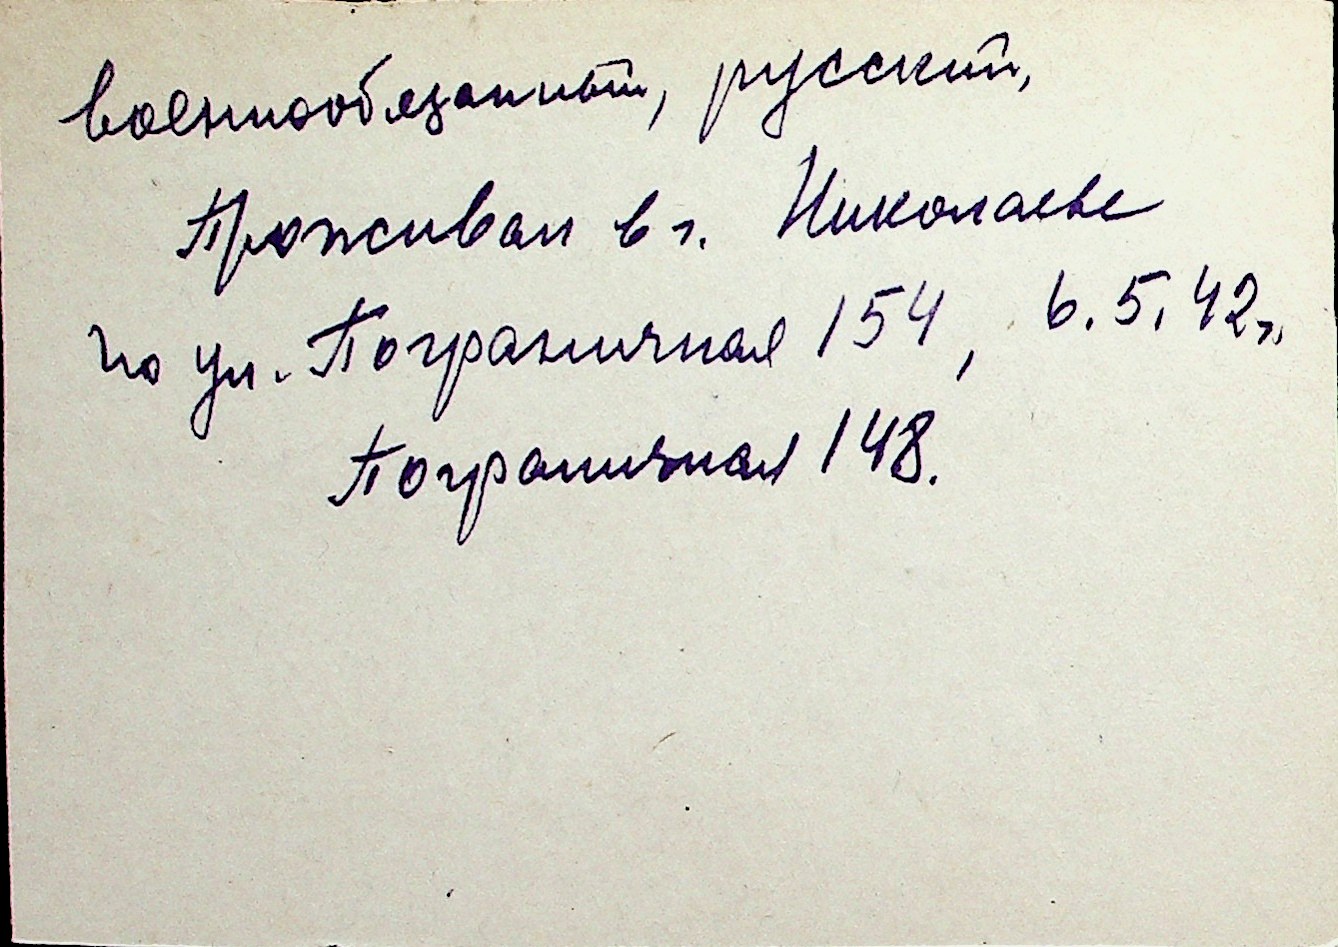 военнообязанный, русский,
Проживал в г. Николаеве
по ул. Пограничная 154, 6.5.42г.
Пограничная 148.